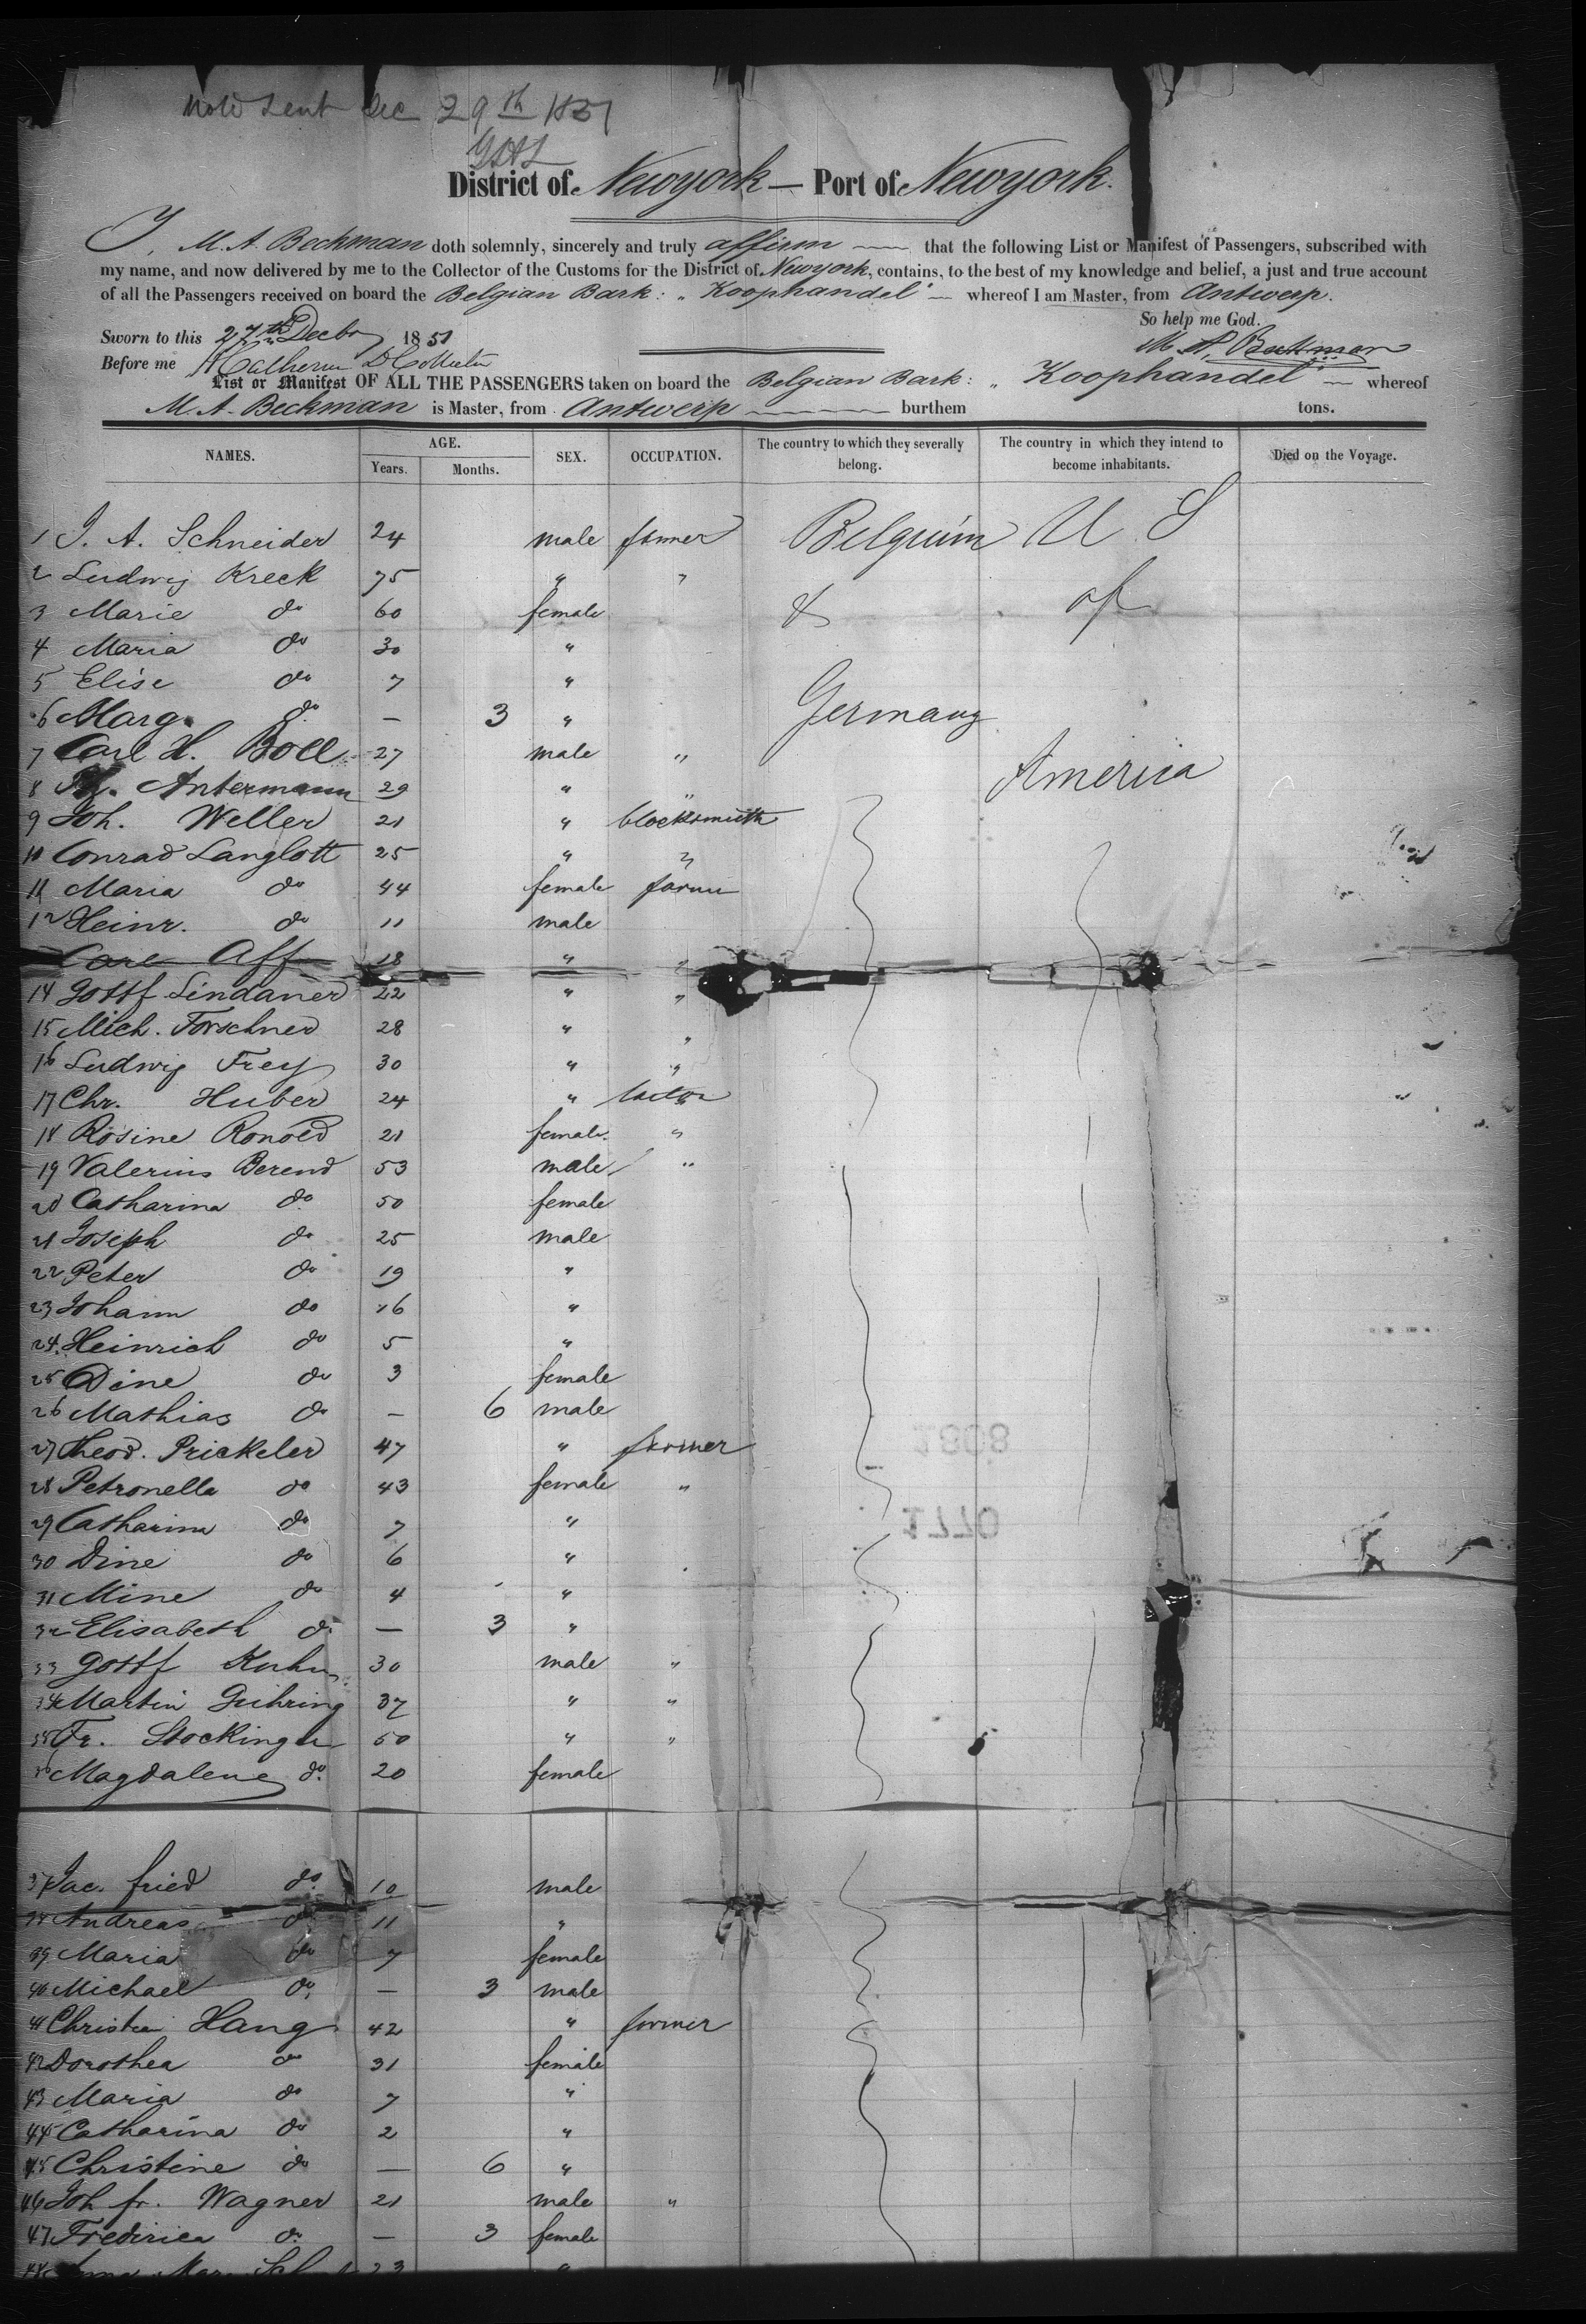 Sent Dec 29th 1851
District of Newyork — Port of Newyork.
I, M. A. Beckman doth solemnly, sincerely and truly affirm that the following List or Manifest of Passengers, subscribed with
my name, and now delivered by me to the Collector of the Customs for the District of Newyork, contains, to the best of my knowledge and belief, a just and true account
of all the Passengers received on board the Belgian Bark: „ Koophandel" whereof I am Master, from Antwerp.
So help me God.
Sworn to this 27th Decbr 1851
M. A. Beckman
Before me
List or Manifest OF ALL THE PASSENGERS taken on board the Belgian Bark: „ Koophandel" whereof
M. A. Beckman is Master, from Antwerp burthem tons.
NAMES. AGE. SEX. OCCUPATION. The country to which they severally belong. The country in which they intend to become inhabitants. Died on the Voyage.
Years. Months.
1 J. A. Schneider 24 male farmer Belgium U S
2 Ludwig Kreck 75 " "
3 Marie do 60 female & of
4 Maria do 30 "
5 Elise do 7 "
6 Marg. do — 3 " Germany
7 Carl H. Boll 27 male "
America
8 Antermann 29 " "
9 Joh. Weller 21 " blocksmith
10 Conrad Langlott 25 " "
11 Maria do 44 female
12 Heinr. do 11 male
Carl Aff 18 " "
14 Gottf Lindaner 22 " "
15 Mich. Forschner 28 " "
16 Ludwig Frey 30 " "
17 Chr. Huber 24 "
18 Rosine Ronold 21 female "
19 Valerius Berend 53 male "
20 Catharina do 50 female
21 Joseph do 25 male
22 Peter do 19 "
23 Johann do 16 "
24 Heinrich do 5 "
25 Dine do 3 female
26 Mathias do — 6 male
27 Theod. Prickeler 47 " farmer
28 Petronella do 43 female "
29 Catharina do 7 "
30 Dine do 6 "
31 Mine do 4 "
32 Elisabeth do — 3 "
33 Gottf Kuhn 30 male "
34 Martin Guhring 37 " "
35 Fr. Stockinger 50 " "
36 Magdalene do 20 female
37 Jac. fried do 10 male
38 Andreas do 11 "
39 Maria do 7 female
40 Michael do — 3 male
41 Christian Hang 42 " farmer
42 Dorothea do 31 female
43 Maria do 7 "
44 Catharina do 2 "
45 Christine do — 6 "
46 Joh fr. Wagner 21 male "
47 Fredirica do — 3 female
48 Anna Mar. 23 "